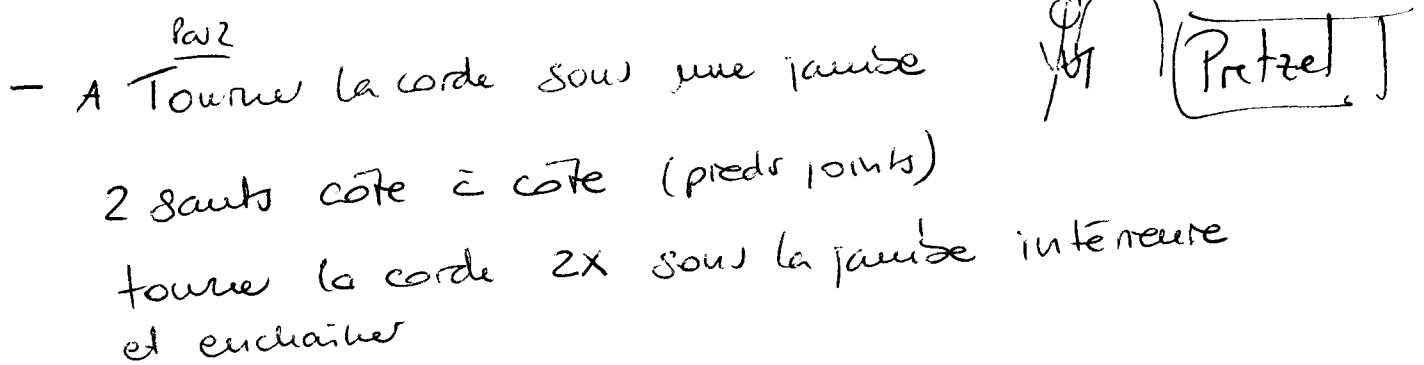 Par 2
- A Tourner la corde sous une jambe
Pretzel
2 sauts côte à côte (pieds joints)
tourner la corde 2x sous la jambe intérieure
et enchaîner